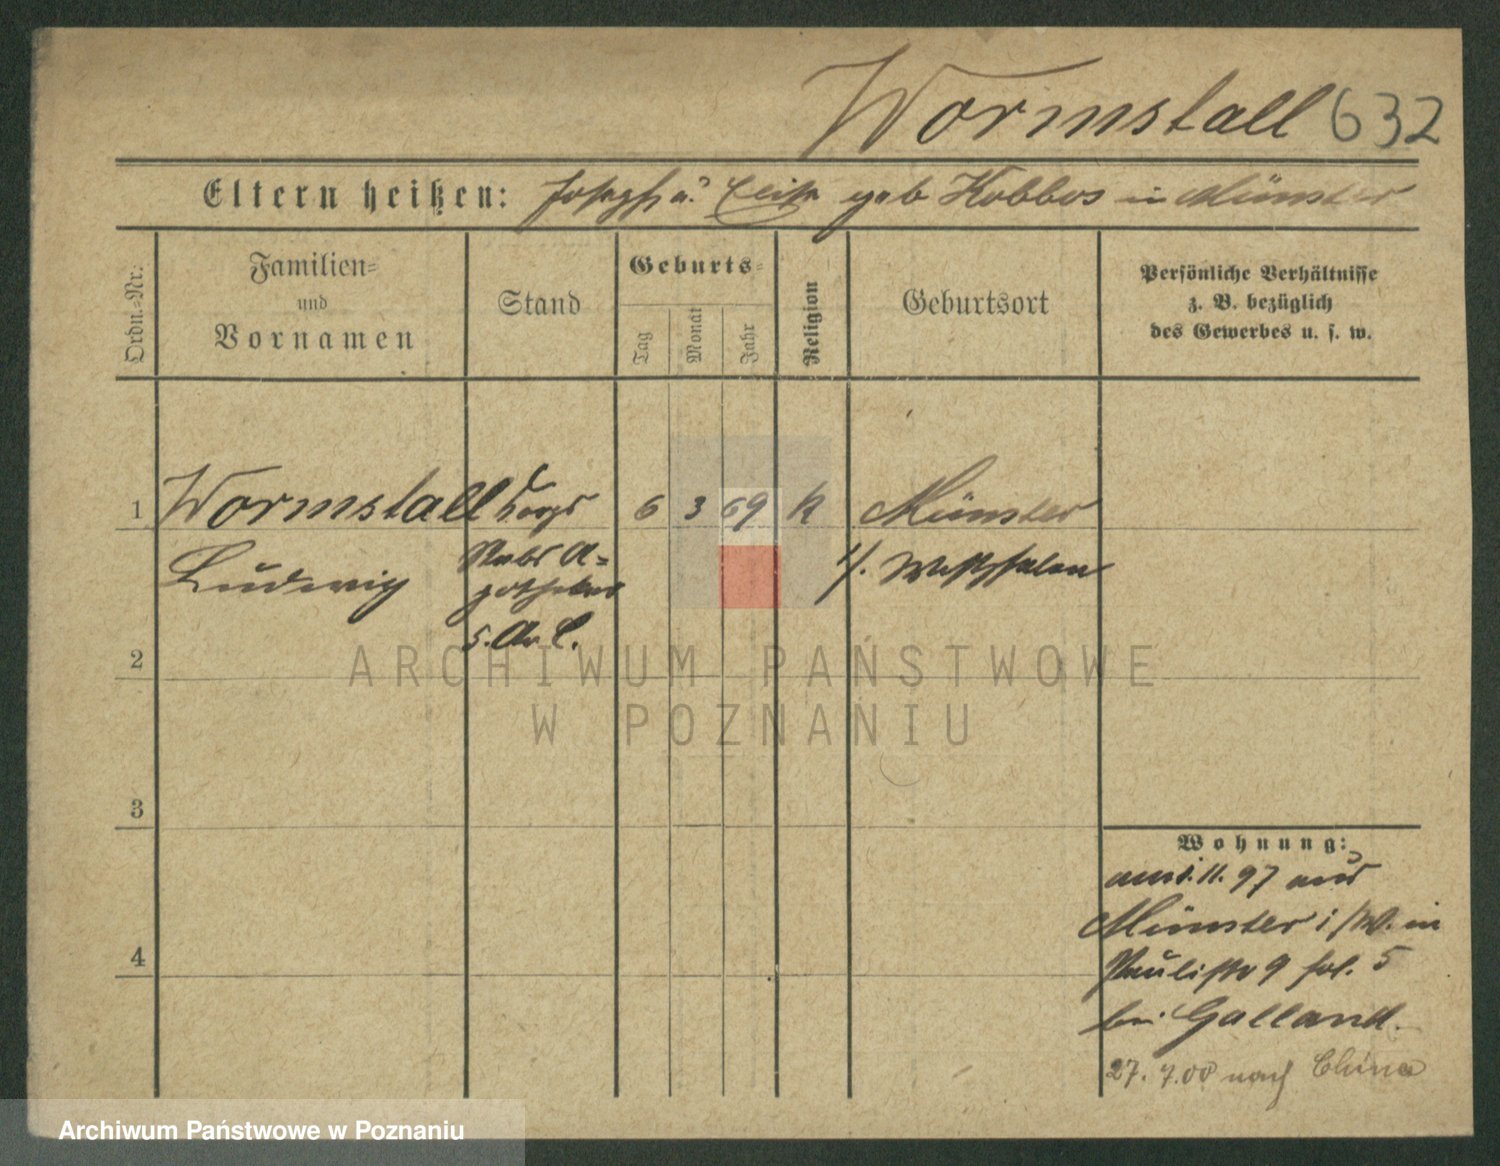 Wormstall 632
Eltern heißen: Joseph u. Elise geb Kobbos in Münster
Ordn.-Nr.
Familien- und Vornamen
Stand
Geburts-
Tag
Monat
Jahr
Religion
Geburtsort
Persönliche Verhältnisse
z. B. bezüglich
des Gewerbes u. s. w.
1 Wormstall Korps 6 3 69 k Münster
Ludwig Stabs A- i/. Westfalen
potheker
5. A. C.
2
3
4
Wohnung:
am 1.11.97 aus
Münster i/W. in
Paulistr 9 fol. 5
bei Galland.
27. 7.00 nach China
ARCHIWUM PAŃSTWOWE
W POZNANIU
Archiwum Państwowe w Poznaniu